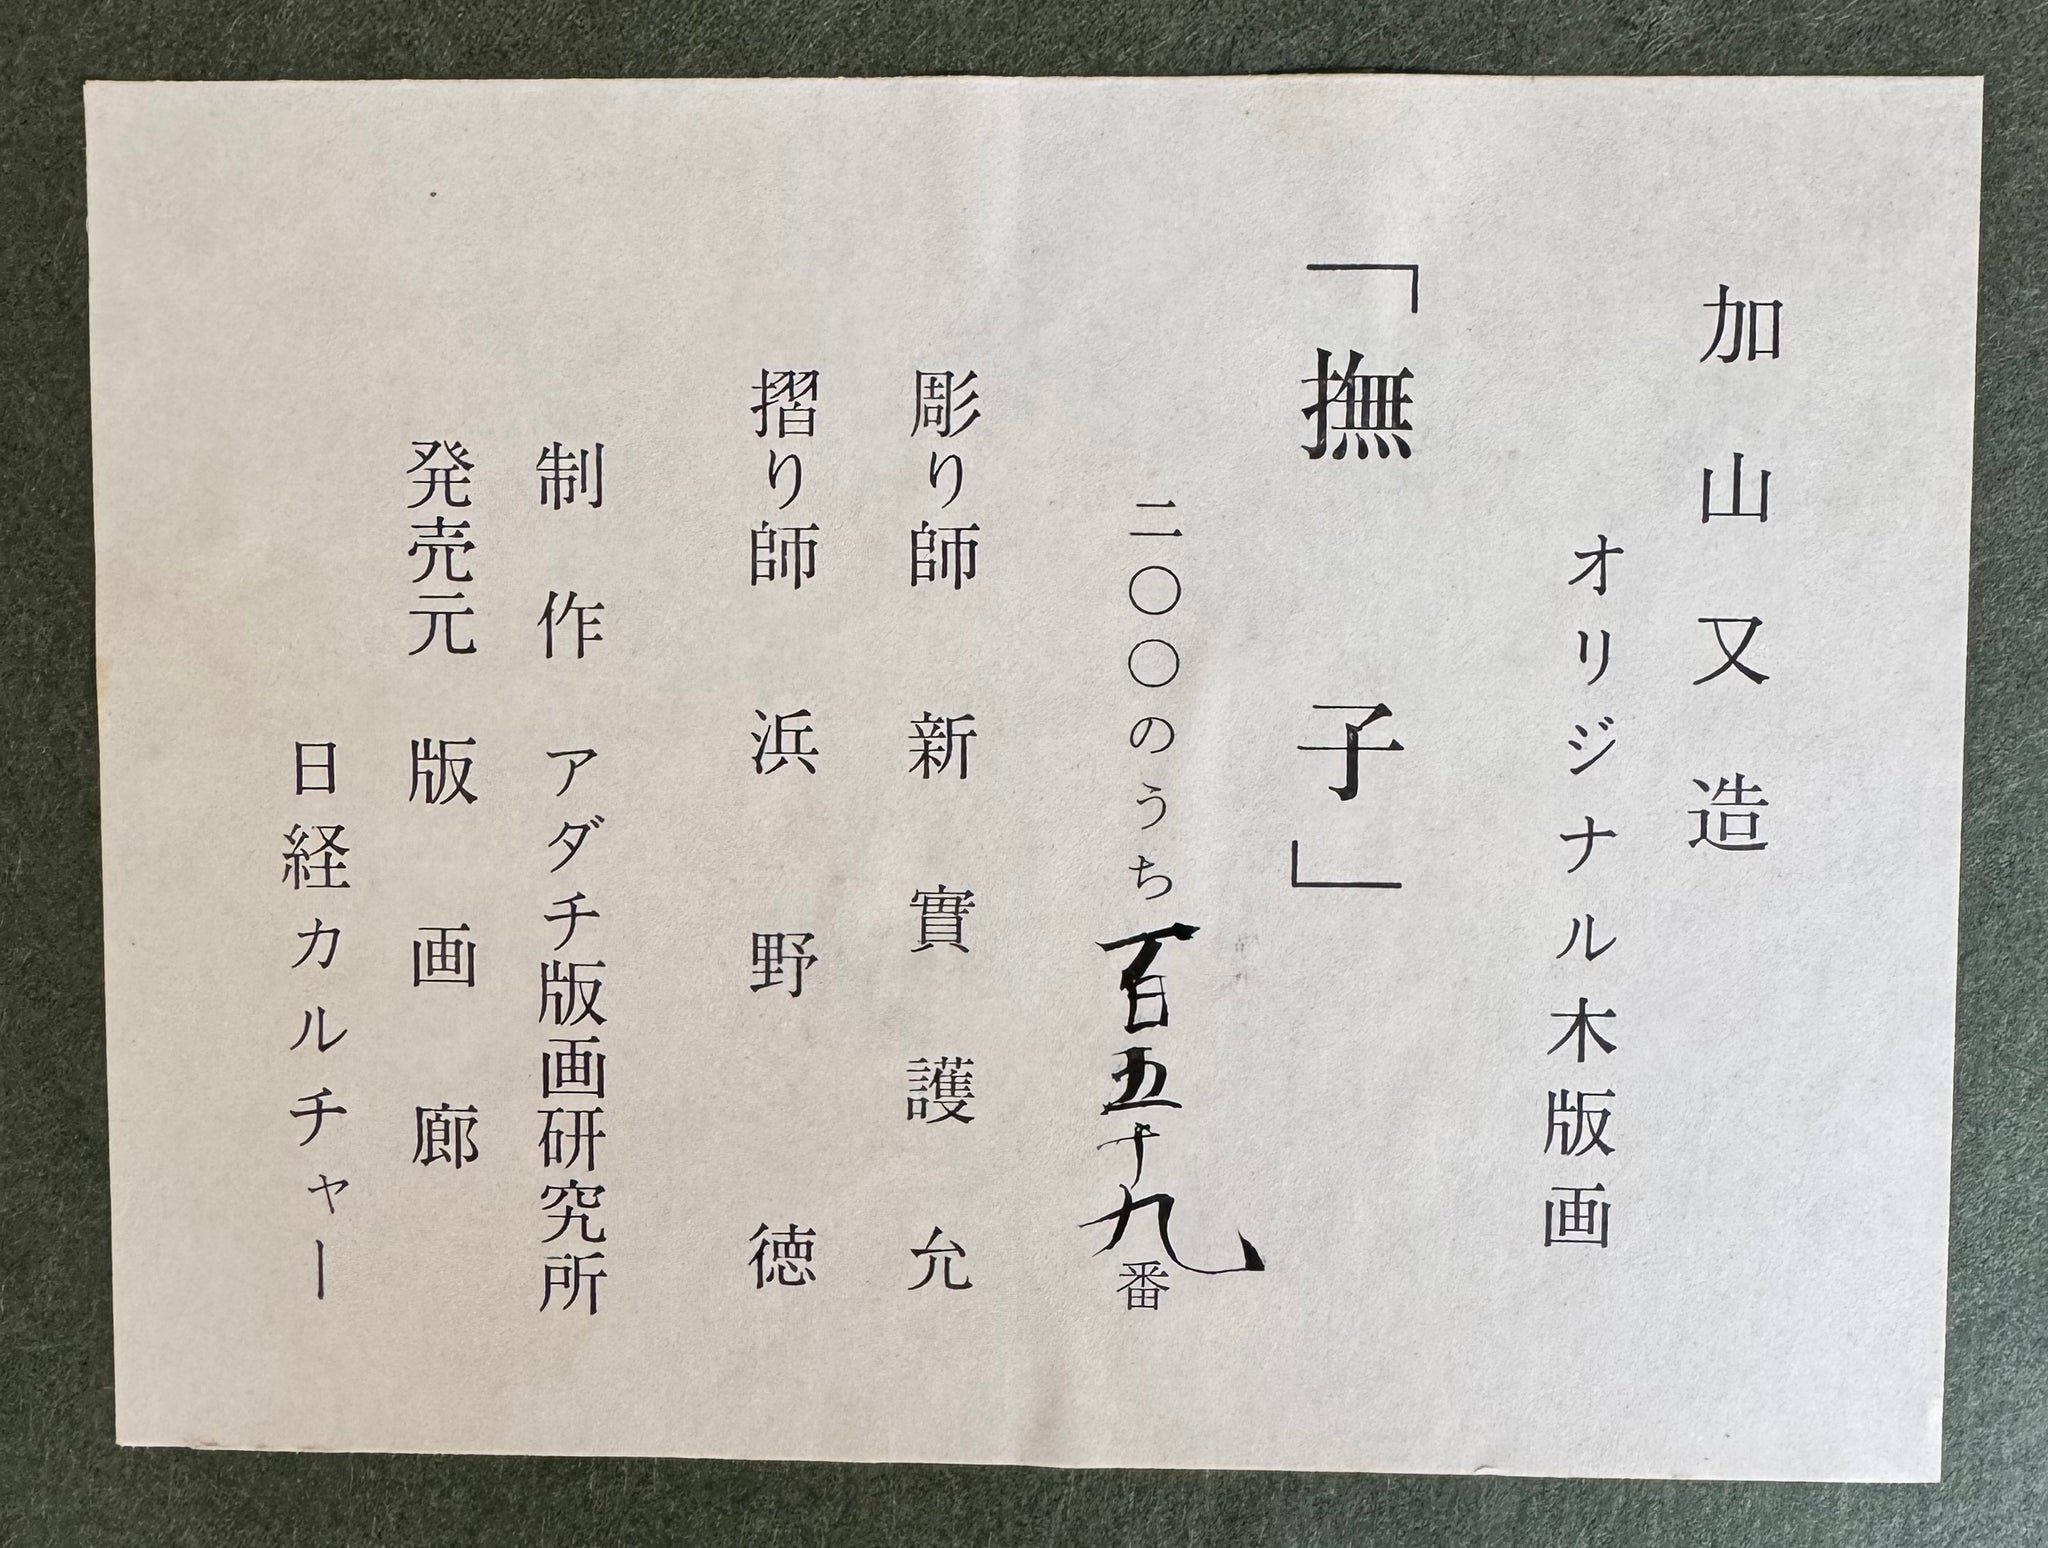 加山又造
オリジナル木版画
「撫子」
二〇〇のうち百五十九番
彫り師 新實護允
摺り師 浜野徳
制作 アダチ版画研究所
発売元 版画廊
日経カルチャー